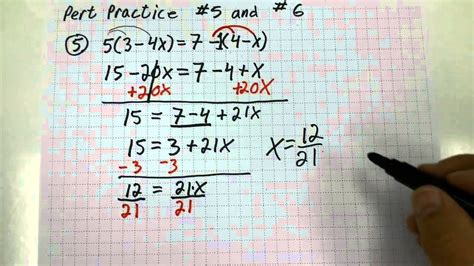 Pert Practice #5 and #6
⑤ 5(3-4x)=7-1(4-x)
15-20x=7-4+x
+20x +20x
15 = 7-4+21x
15 = 3+21x
-3 -3
12/21 = 21·x/21
x=12/21